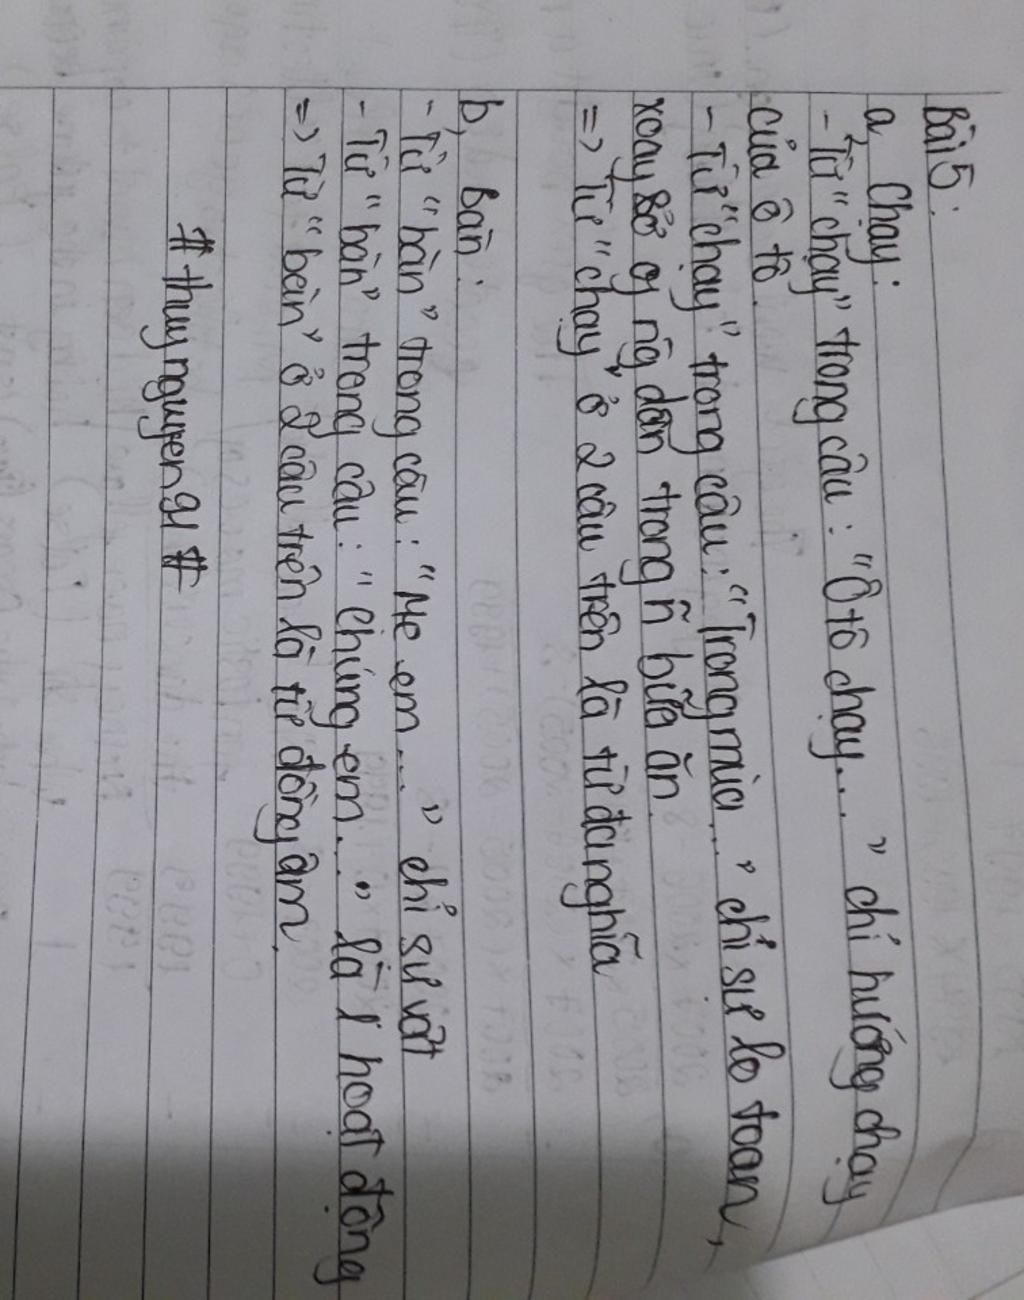 Bài 5:
a, Chạy:
- Từ "chạy" trong câu: "Ô tô chạy... " chỉ hướng chạy
của ô tô.
- Từ "chạy" trong câu: "Trong mùa... " chỉ sự lo toan,
xoay sở của ng dân trong ~ bữa ăn.
=> Từ "chạy" ở 2 câu trên là từ đa nghĩa
b, Bàn:
- Từ "bàn" trong câu: "Mẹ em... " chỉ sự vật
- Từ "bàn" trong câu: "Chúng em... " là 1 hoạt động
=> Từ "bàn" ở 2 câu trên là từ đồng âm.
# thuynguyen91 #